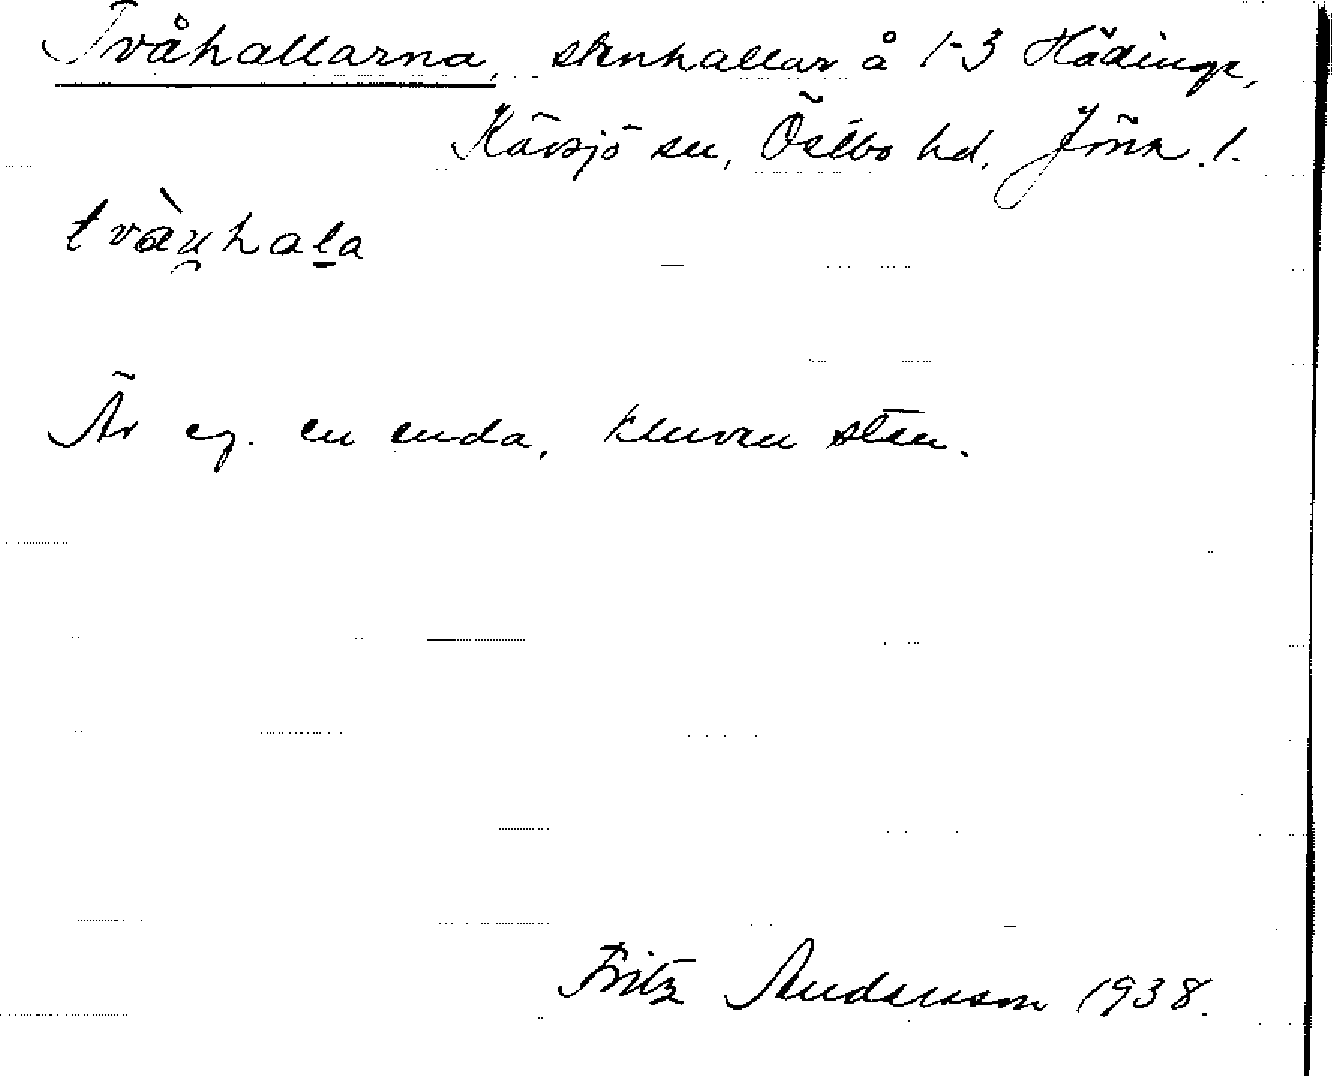 Tvåhallarna, stenhallar å 1-3 Hädinge,
Kävsjö sn, Östbo hd. Jönk. l.
tvàu̯hala
Är eg. en enda, kluven sten.
Fritz Andersson 1938.